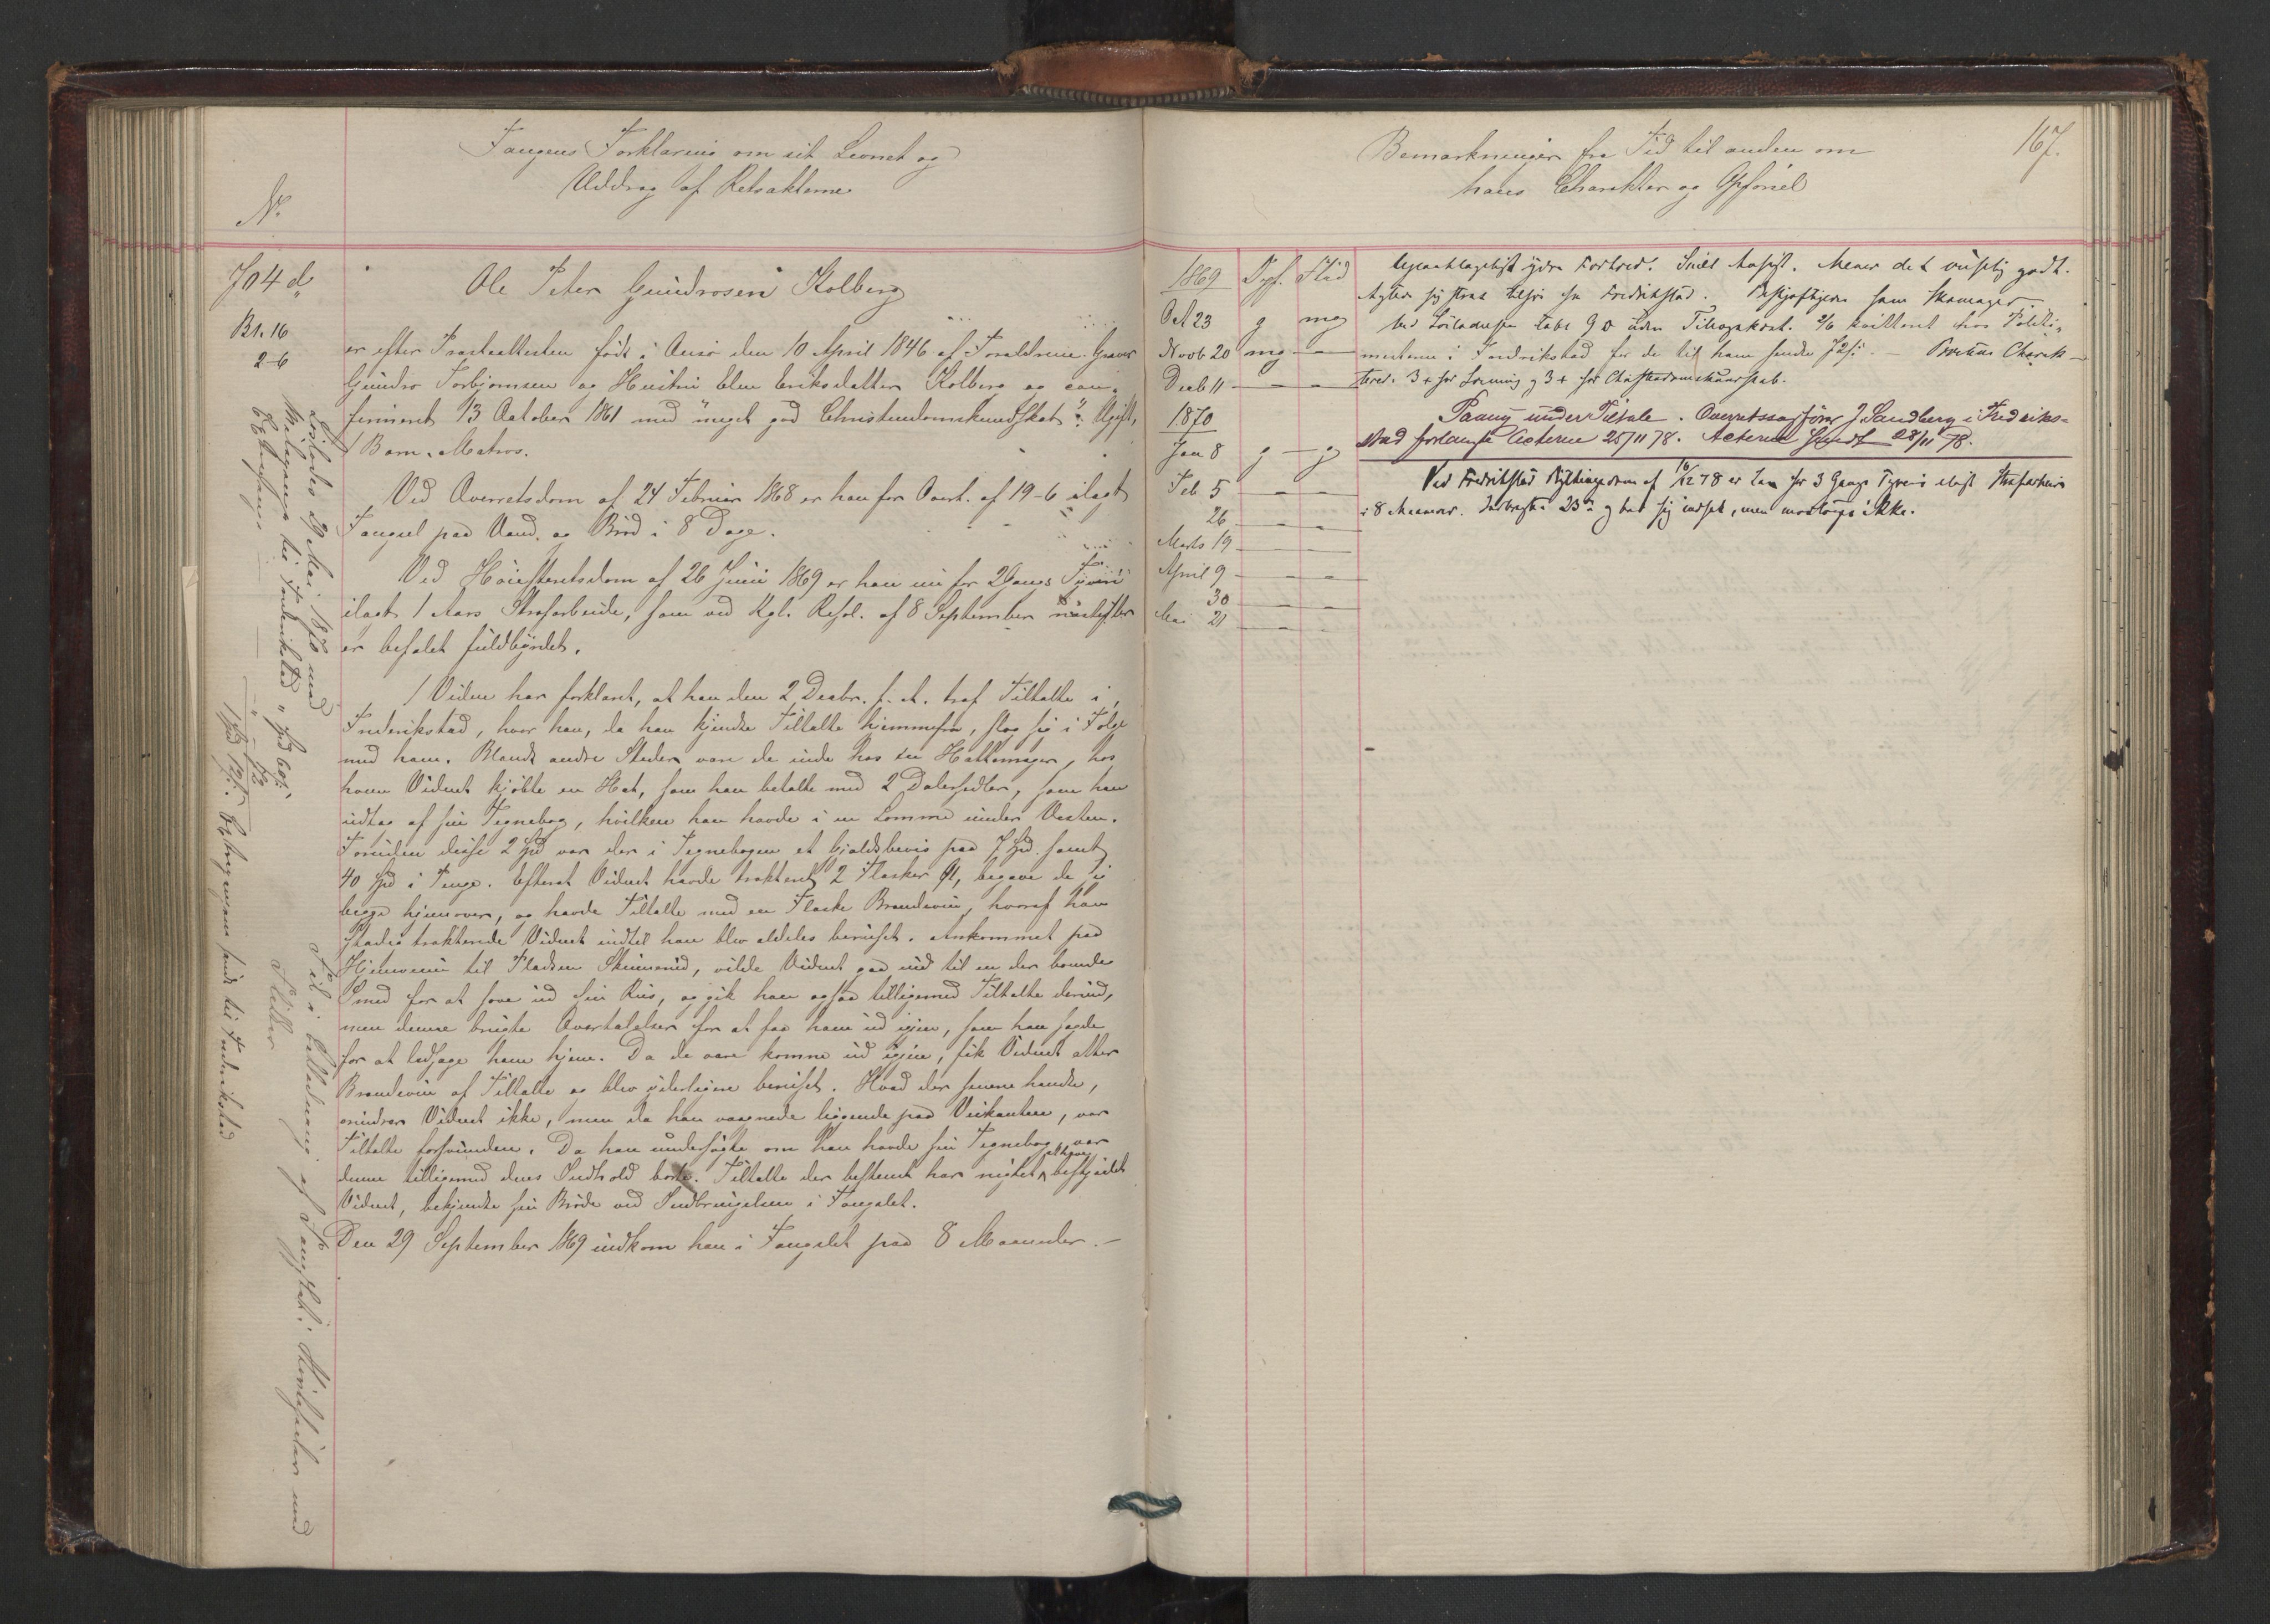 Fangens Forklaring om sit Levnet og
Uddrag af Retsakterne
No.
704 d
Bl. 16
2-6
Ole Peter Gundrosen Kolberg
er efter Præsteattesten født i Onsø den 10 April 1846 af Forældrene Graver
Gundro Torbjørnsen og Hustru Elen Eriksdatter Kolberg og con-
firmeret 13 October 1861 med "meget god Christendomskundskab". Ugift,
1 Barn. Matros.
Ved Overretsdom af 24 Februar 1868 er han for Overt. af 19-6 ilagt
Fængsel paa Vand og Brød i 8 Dage.
Ved Høiesteretsdom af 26 Juni 1869 er han nu for 2 Gang Tyveri
ilagt 1 Aars Strafarbeide, som ved Kgl. Resol. af 8 September næstefter
er befalet fuldbyrdet.
1 Vidne har forklaret, at han den 2 Decbr. f. A. traf Tiltalte i
Frederikstad, hvor han, da han kjendte Tiltalte hjemmefra, slog sig i Følge
med ham. Blandt andre Steder vare de inde hos en Hattemager, hos
hvem Vidnet kjøbte en Hat, som han betalte med 2 Dalersedler, som han
udtog af sin Tegnebog, hvilken han havde i en Lomme under Vesten.
Foruden disse 2 Spd var der i Tegnebogen et Gjældsbevis paa 7 Spd samt
40 Spd i Penge. Efterat Vidnet havde trakteret 2 Flasker Øl, begave de sig
begge hjemover, og havde Tiltalte med en Flaske Brændevin, hvoraf han
stadig trakterede Vidnet indtil han blev aldeles beruset. Ankommet paa
Hjemveien til Pladsen Skinnerud, vilde Vidnet gaa ind til en der boende
Smed for at sove ud sin Rus, og gik han ogsaa tilligemed Tiltalte derind,
men denne brugte Overtalelser for at faa ham ud igjen, som han sagde
for at ledsage ham hjem. Da de vare komne ud igjen, fik Vidnet atter
Brændevin af Tiltalte og blev yderligere beruset. Hvad der senere hændte,
erindrer Vidnet ikke, men da han vaagnede liggende paa Veikanten, var
Tiltalte forsvunden. Da han undersøgte om han havde sin Tegnebog, var
denne tilligemed dens Indhold borte. Tiltalte der bestemt har negtet at have bestjaalet
Vidnet, bekjendte sin Brøde ved Indbringelsen i Fængslet.
Den 29 September 1869 indkom han i Fangslet paa 8 Maaneder.-
Løslades 29 Mai 1870 med
til Frederikstad " Spd 60 s.
1 Spd 12 s.
sendt til Frederikstad
Bemærkninger fra Tid til anden om
hans Charakter og Opførsel
167.
1869 Opf. Flid
Oct 23 g mg
Novb 20 mg —
Decb 11 — —
1870
Jan 8 g — g
Feb 5 — —
26 — —
Marts 19 — —
April 9 — —
30 — —
Mai 21 — —
ydre . Snilt Ansigt. Mener det oprigtig godt.
Agter sig strax tilsøs fra Fredrikstad. Beskjæftiges som Skomager.
Ved Løsladelsen . 2/6 kvitteret hos Politi-
mesteren i Fredrikstad for de til ham sendte 72 s. - Charak-
teres: 3+ for Læsning og 3+ for Christendomskundskab.
Paany under Tiltale. Overretssagfører J Sandberg i Frederiks-
stad forlangte Acterne 25/11 78. Acterne sendt 28/11 78.
Ved Fredrikstad Bythingsdom af 16/12 78 er han for 3 Gangs Tyveri ilagt Strafarbeide
i 8 Maaneder. 23 og bad sig indsat, men modtoges ikke.